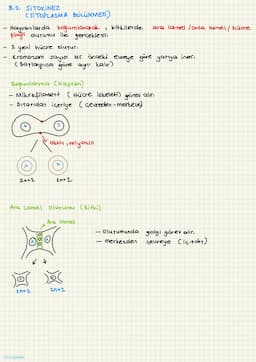 B.2. SİTOKİNEZ
(SİTOPLAZMA BÖLÜNMESİ)
- Hayvanlarda boğumlanarak, bitkilerde ara lamel / orta lamel / hücre plağı oluşumu ile gerçekleşir.
- 2 yeni hücre oluşur.
- Kromozom sayısı bir önceki evreye göre yarıya iner.
(Başlangıca göre aynı kalır)
Boğumlanma (Hayvan)
- Mikrofilament (Hücre iskeleti) görev alır.
- Dışarıdan içeriye (çevreden-merkeze)
aktin, miyozin
2n=2
2n=2
Ara Lamel Oluşumu (Bitki)
Ara lamel
- Oluşumunda golgi görev alır.
- Merkezden çevreye (İç→dış)
2n=2
2n=2